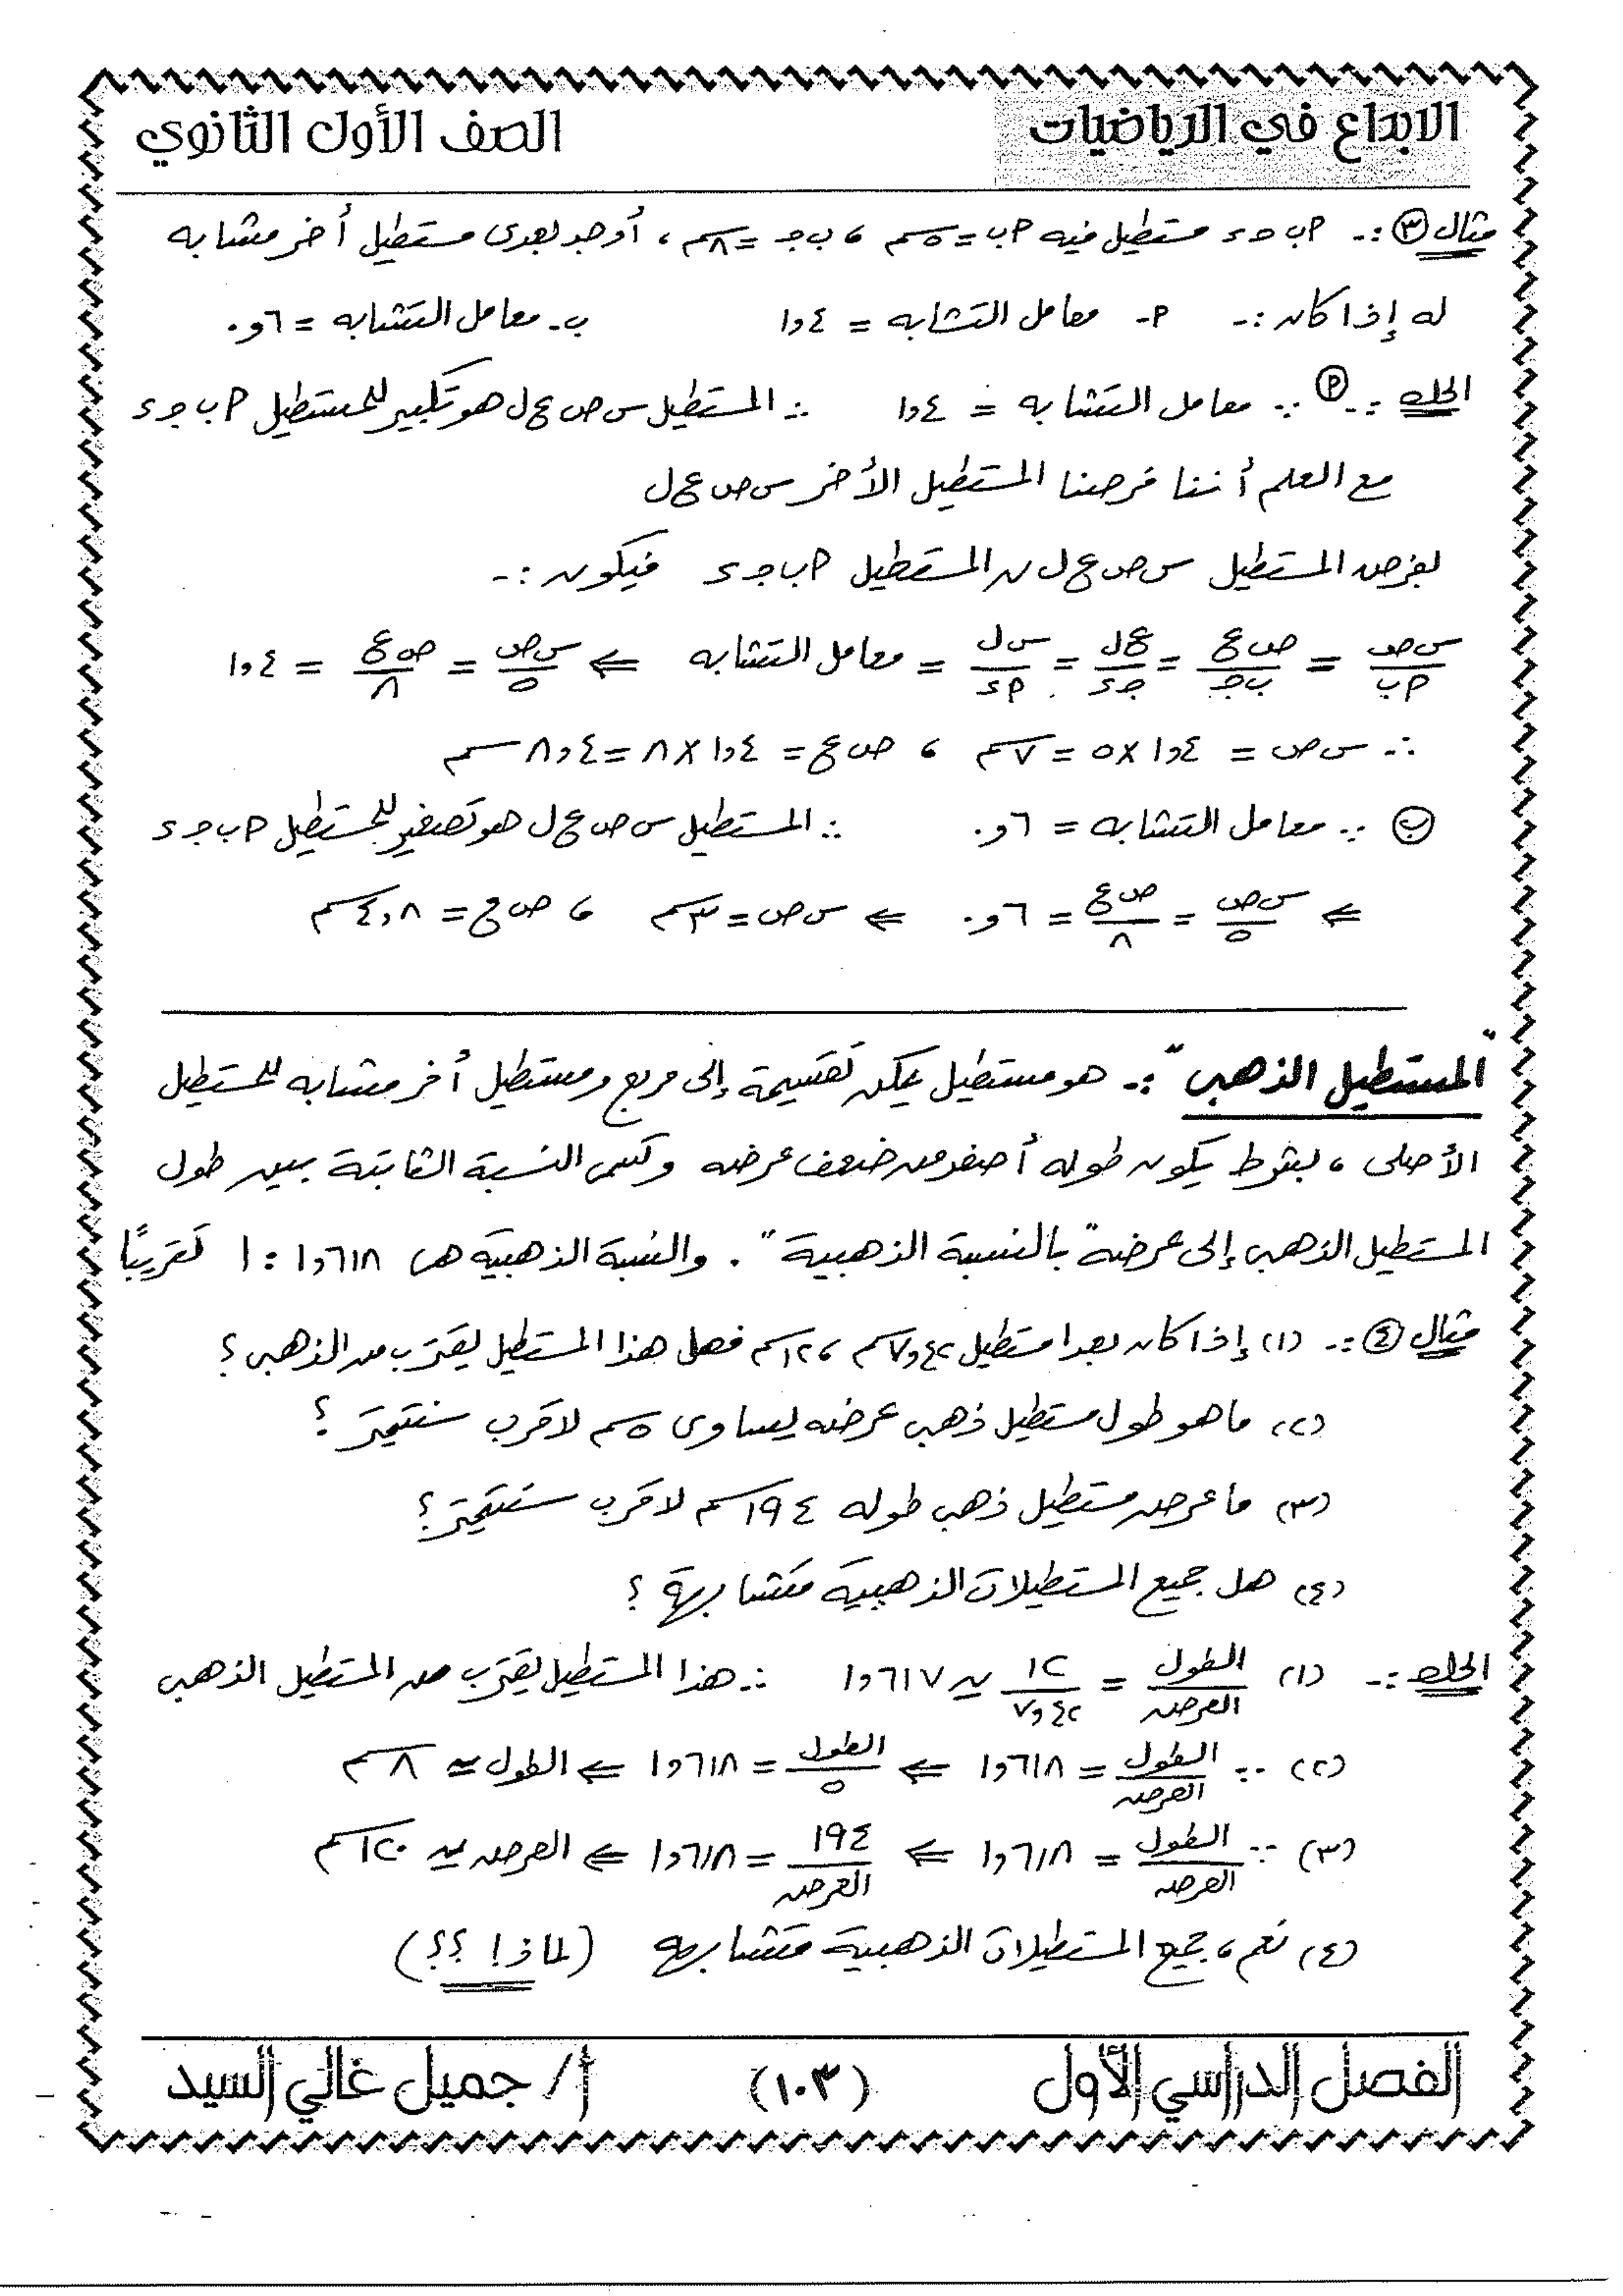 الابداع في الرياضيات
الصف الأول الثانوي
مثال (٣) :- ٢ ب جـ ء مستطيل فيه ٢ ب = ٥ سم ، ب جـ = ٨ سم ، أوجد بعدى مستطيل أخر مشابه
له إذا كان :- ٢- معامل التشابه = ١,٤ ب- معامل التشابه = ٠,٦
الحل :- (٢) ∵ معامل التشابه = ١,٤ ∴ المستطيل س ص ع ل هو تكبير للمستطيل ٢ ب جـ ء
مع العلم أننا فرضنا المستطيل الأخر س ص ع ل
بفرض المستطيل س ص ع ل ~ المستطيل ٢ ب جـ ء فيكون :-
س ص / ٢ ب = ص ع / ب جـ = ع ل / جـ ء = س ل / ٢ ء = معامل التشابه ⇐ س ص / ٥ = ص ع / ٨ = ١,٤
∴ س ص = ١,٤ × ٥ = ٧ سم ، ص ع = ١,٤ × ٨ = ٨,٤ سم
(ب) ∵ معامل التشابه = ٠,٦ ∴ المستطيل س ص ع ل هو تصغير للمستطيل ٢ ب جـ ء
⇐ س ص / ٥ = ص ع / ٨ = ٠,٦ ⇐ س ص = ٣ سم ، ص ع = ٤,٨ سم
"المستطيل الذهبى" :- هو مستطيل يمكن تقسيمة إلى مربع ومستطيل أخر مشابه للمستطيل
الأصلى ، بشرط يكون طوله أصغر من ضعف عرضه وتسمى النسبة الثابتة بين طول
المستطيل الذهبى إلى عرضة "بالنسبة الذهبية" . والنسبة الذهبية هى ١,٦١٨ : ١ تقريبًا
مثال (٤) :- (١) إذا كان بعدا مستطيل ٧,٤٢ سم ، ١٢ سم فهل هذا المستطيل يقترب من الذهبى ؟
(٢) ما هو طول مستطيل ذهبى عرضه يساوى ٥ سم لاقرب سنتيمتر ؟
(٣) ما عرض مستطيل ذهبى طوله ١٩٤ سم لاقرب سنتيمتر ؟
(٤) هل جميع المستطيلات الذهبية متشابهة ؟
الحل :- (١) الطول / العرض = ١٢ / ٧,٤٢ ≃ ١,٦١٧ ∴ هذا المستطيل يقترب من المستطيل الذهبى
(٢) ∵ الطول / العرض = ١,٦١٨ ⇐ الطول / ٥ = ١,٦١٨ ⇐ الطول ≃ ٨ سم
(٣) ∵ الطول / العرض = ١,٦١٨ ⇐ ١٩٤ / العرض = ١,٦١٨ ⇐ العرض ≃ ١٢٠ سم
(٤) نعم ، جميع المستطيلات الذهبية متشابهه (لماذا ؟؟)
الفصل الدراسي الأول
(١٠٣)
أ / جميل غالي السيد